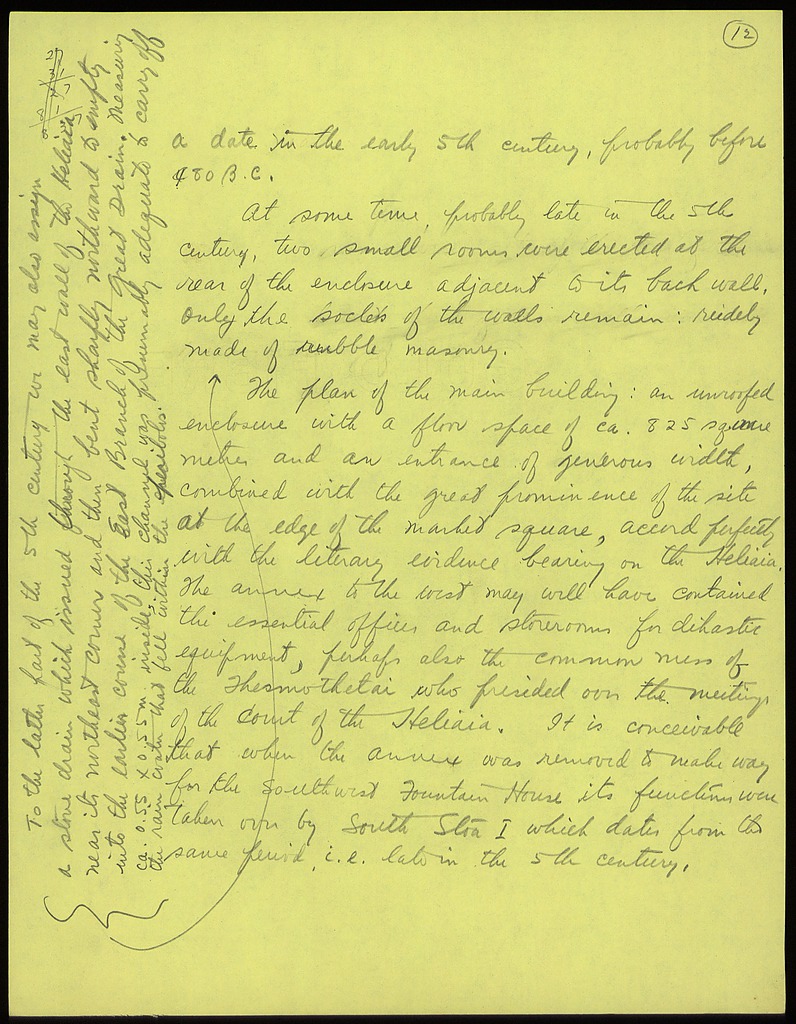 12
a date in the early 5th century, probably before
480 B.C.
At some time, probably late in the 5th
century, two small rooms were erected at the
rear of the enclosure adjacent to its back wall.
Only the socles of the walls remain: rudely
made of rubble masonry.
The plan of the main building: an unroofed
enclosure with a floor space of ca. 825 square
metres and an entrance of generous width,
combined with the great prominence of the site
at the edge of the market square, accord perfectly
with the literary evidence bearing on the Heliaia.
The annex to the west may well have contained
the essential offices and storerooms for dikastic
equipment, perhaps also the common mess of
the Thesmothetai who presided over the meetings
of the Court of the Heliaia. It is conceivable
that when the annex was removed to make way
for the Southwest Fountain House its functions were
taken over by South Stoa I which dates from the
same period, i.e. late in the 5th century.
To the latter part of the 5th century we may also assign
a stone drain which issued through the east wall of the Heliaia
near its northeast corner and then bent sharply northward to empty
into the earlier course of the East Branch of the Great Drain. Measuring
ca. 0.55 x 0.55 m. inside, this channel was presumably adequate to carry off
the rain water that fell within the peribolos.